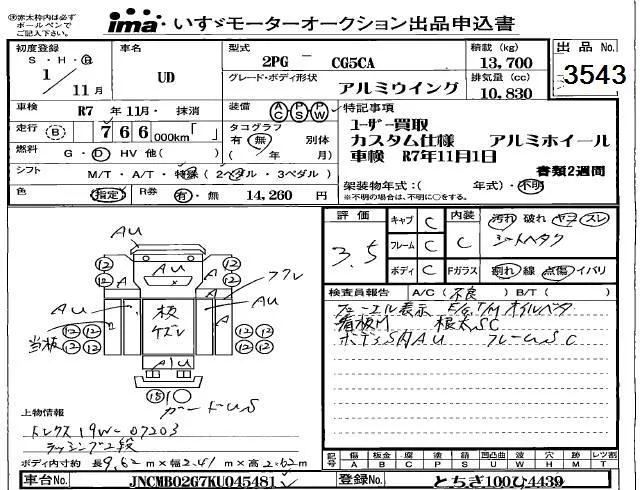 ※赤太枠内は必ず
ボールペンで
ご記入下さい。
ima いすゞモーターオークション出品申込書
初度登録
S・H・R
1/11月
車名
UD
型式
2PG － CG5CA
グレード・ボディ形状
アルミウイング
積載 (kg)
13,700
排気量 (cc)
10,830
出品No.
3543
車検
R7 年 11月・ 抹消
装備
AC PS PW
特記事項
ユーザー買取
カスタム仕様 アルミホイール
車検 R7年11月1日
書類2週間
走行
(B) 766,000km「 」
タコグラフ
有・無 別体
( 年/ 月)
燃料
G・D HV 他( )
シフト
M/T・A/T・特殊 (2ペダル・3ペダル)
架装物年式:( 年式)・不明
※不明の場合は、不明に○をする。
色
指定
R券
有・無
14,260 円
評価
3.5
キャブ C
フレーム C
ボディ C
内装
C
Fガラス
汚れ 破れ ヤコ スレ
シートヘタク
割れ 線 点傷 イバリ
検査員報告 A/C(不良) B/T( )
フューエル表示 E/G,T/M オイルベタ
看板M 根太SC
ボディS内AU フレームSC
AU
12
12
A
AU
A
12
12
フクレ
AU
板
ケズレ
AU
当板
12
12
12
12
12
12
12
12
AU
15
ガードUS
上物情報
トレクス 19W-07203
ラッシング2段
ボディ内寸約 長 9.62 m×幅 2.41 m×高 2.62 m
記号 A 傷 B 板金 C 腐 P 塗 S 錆 U 凹凸曲 W 波 H 穴 M 跡 R 大破 T レツ割
車台No.
JNCMB02G7KU045481
登録No.
とちぎ100ひ4439